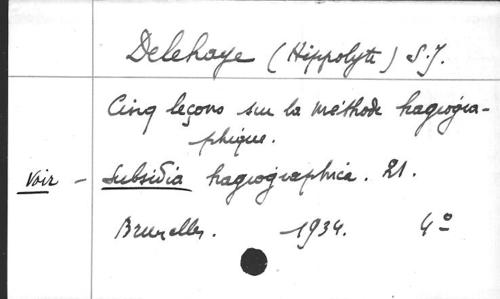 Delehaye (Hippolyte) S.J.
Cinq leçons sur la méthode hagiogra-
phique.
Voir - Subsidia hagiographica. 21.
Bruxelles. 1934. 4º